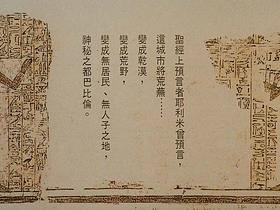 聖經上預言者耶利米曾預言，
這城市將荒蕪……
變成乾漠，
變成荒野，
變成無居民、無人子之地，
神秘之都巴比倫。